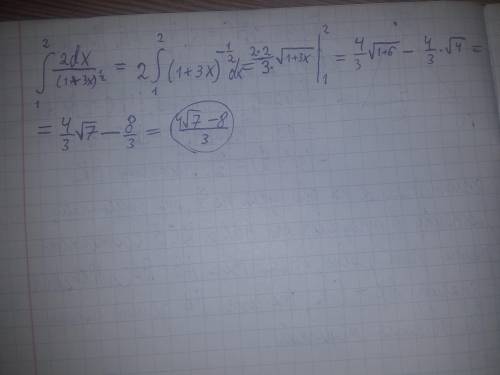 ∫₁² 2dx/(1+3x)^(1/2) = 2∫₁² (1+3x)^(-1/2) dx = (2·2)/3 · √(1+3x) |₁² = 4/3 √(1+6) − 4/3 · √4 =
= 4/3 √7 − 8/3 = (4√7 − 8)/3